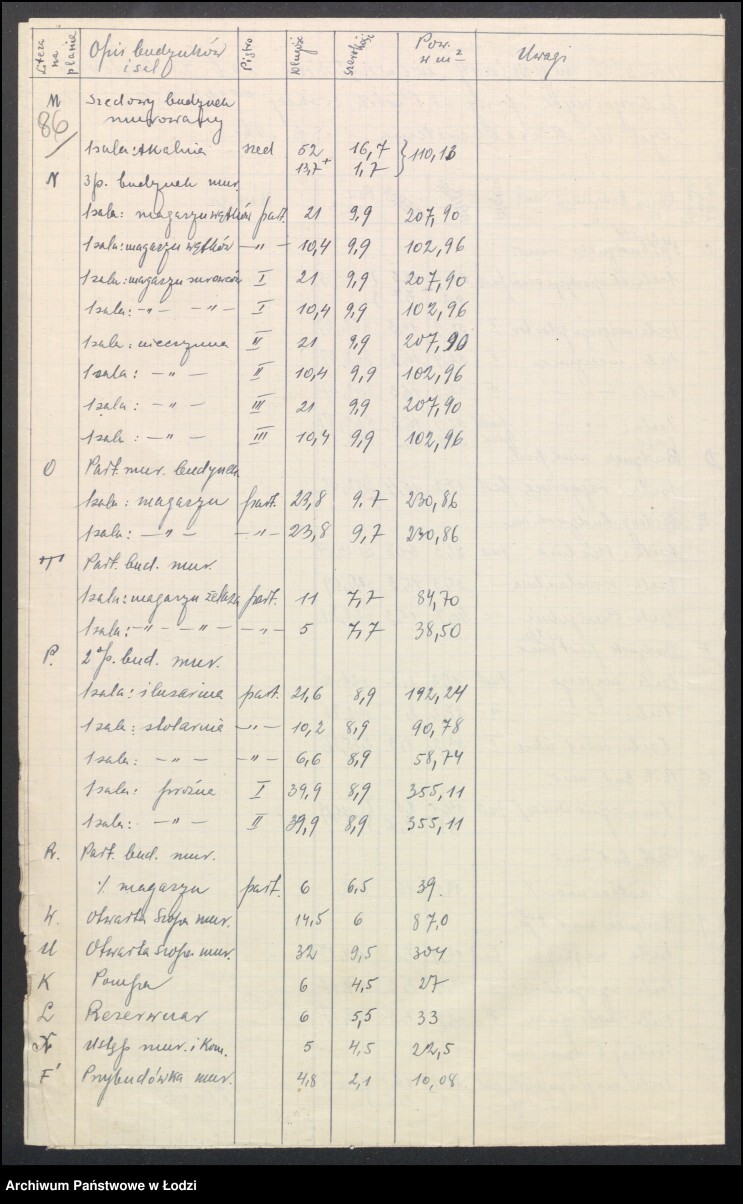 Litera na planie Opis budynków i sal Piętro Długość Szerokość Pow. w m² Uwagi
M Szedowy budynek
86/ murowany
1 sala: tkalnia szed 52 16,7 } 110,13
13,7+ 1,7
N 3p. budynek mur.
1 sala: magazyn wątków part. 21 9,9 207,90
1 sala: magazyn wątków — " — 10,4 9,9 102,96
1 sala: magazyn surowców I 21 9,9 207,90
1 sala: — " — — " — I 10,4 9,9 102,96
1 sala: nieczynna II 21 9,9 207,90
1 sala: — " — II 10,4 9,9 102,96
1 sala: — " — III 21 9,9 207,90
1 sala: — " — III 10,4 9,9 102,96
O Part. mur. budynek
1 sala: magazyn part. 23,8 9,7 230,86
1 sala: — " — — " — 23,8 9,7 230,86
T Part. bud. mur.
1 sala: magazyn żelaza part. 11 7,7 84,70
1 sala: — " — — " — — " — 5 7,7 38,50
P. 2 p. bud. mur.
1 sala: ślusarnia part. 21,6 8,9 192,24
1 sala: stolarnia — " — 10,2 8,9 90,78
1 sala: — " — — " — 6,6 8,9 58,74
1 sala: próżna I 39,9 8,9 355,11
1 sala: — " — II 39,9 8,9 355,11
R. Part. bud. mur.
1/. magazyn part. 6 6,5 39.
W. Otwarta szopa mur. 14,5 6 87,0
U Otwarta szopa mur. 32 9,5 304
K Pompa 6 4,5 27
L Rezerwuar 6 5,5 33
Ustęp mur. i kom. 5 4,5 22,5
F' Przybudówka mur. 4,8 2,1 10,08
Archiwum Państwowe w Łodzi